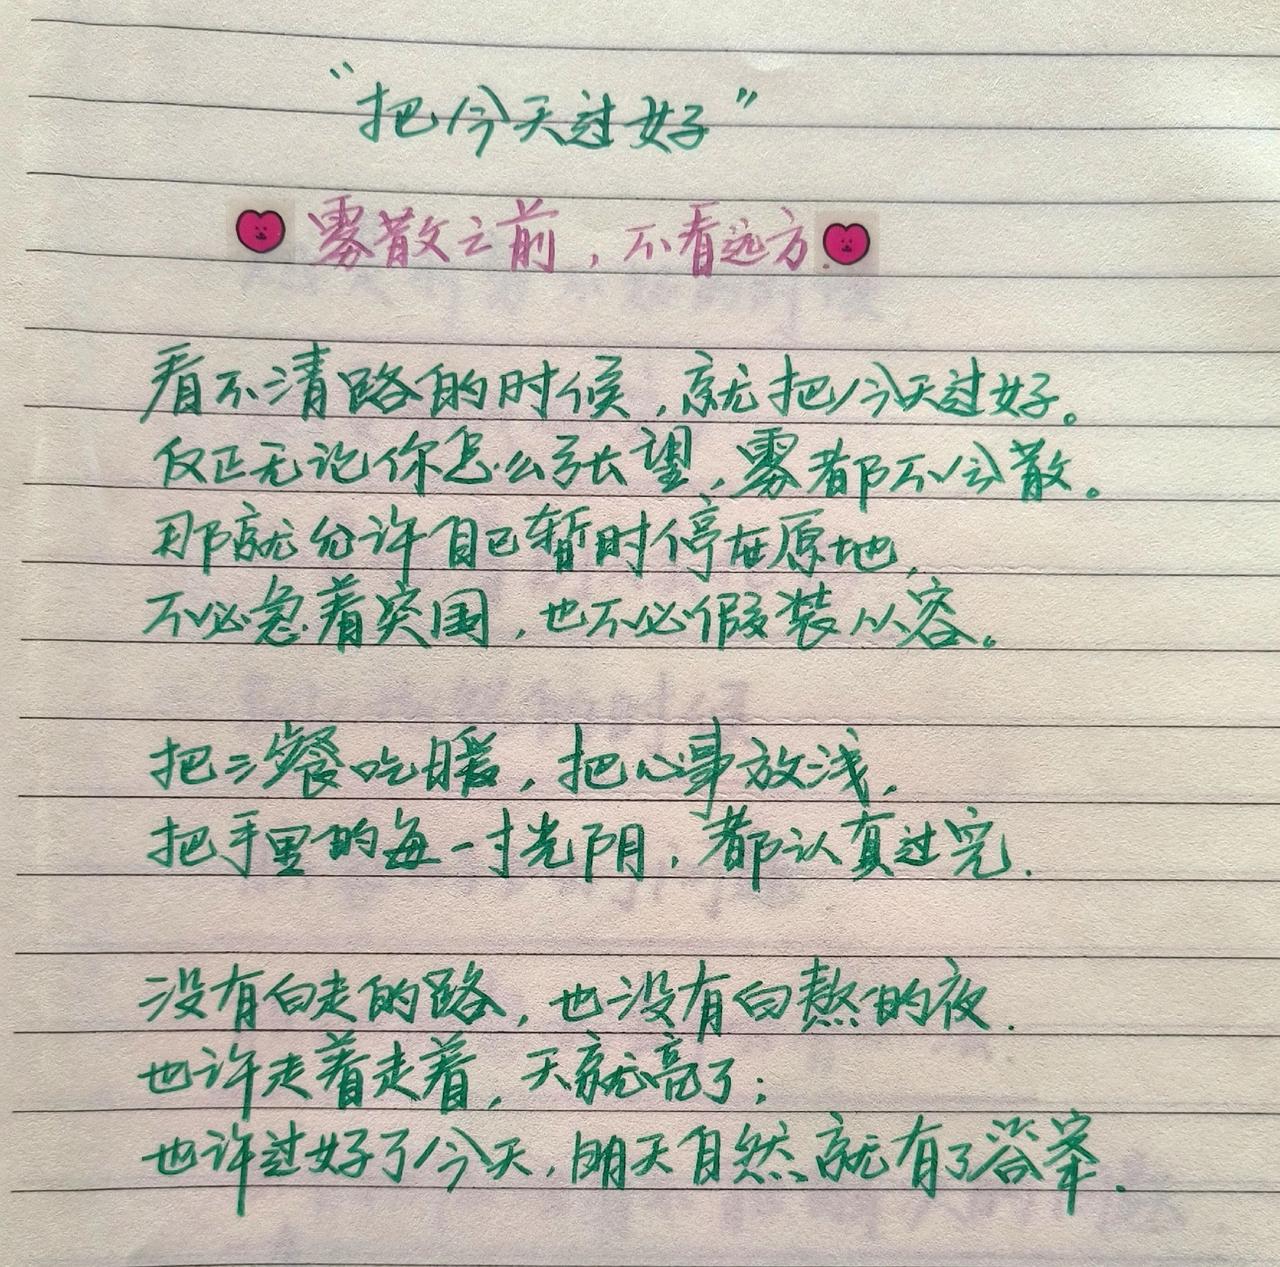 “把今天过好”
雾散之前，不看远方.
看不清路的时候，就把今天过好。
反正无论你怎么张望，雾都不会散。
那就允许自己暂时停在原地，
不必急着突围，也不必假装从容。
把三餐吃暖，把心事放浅，
把手里的每一寸光阴，都认真过完.
没有白走的路，也没有白熬的夜.
也许走着走着，天就亮了；
也许过好了今天，明天自然就有了答案.